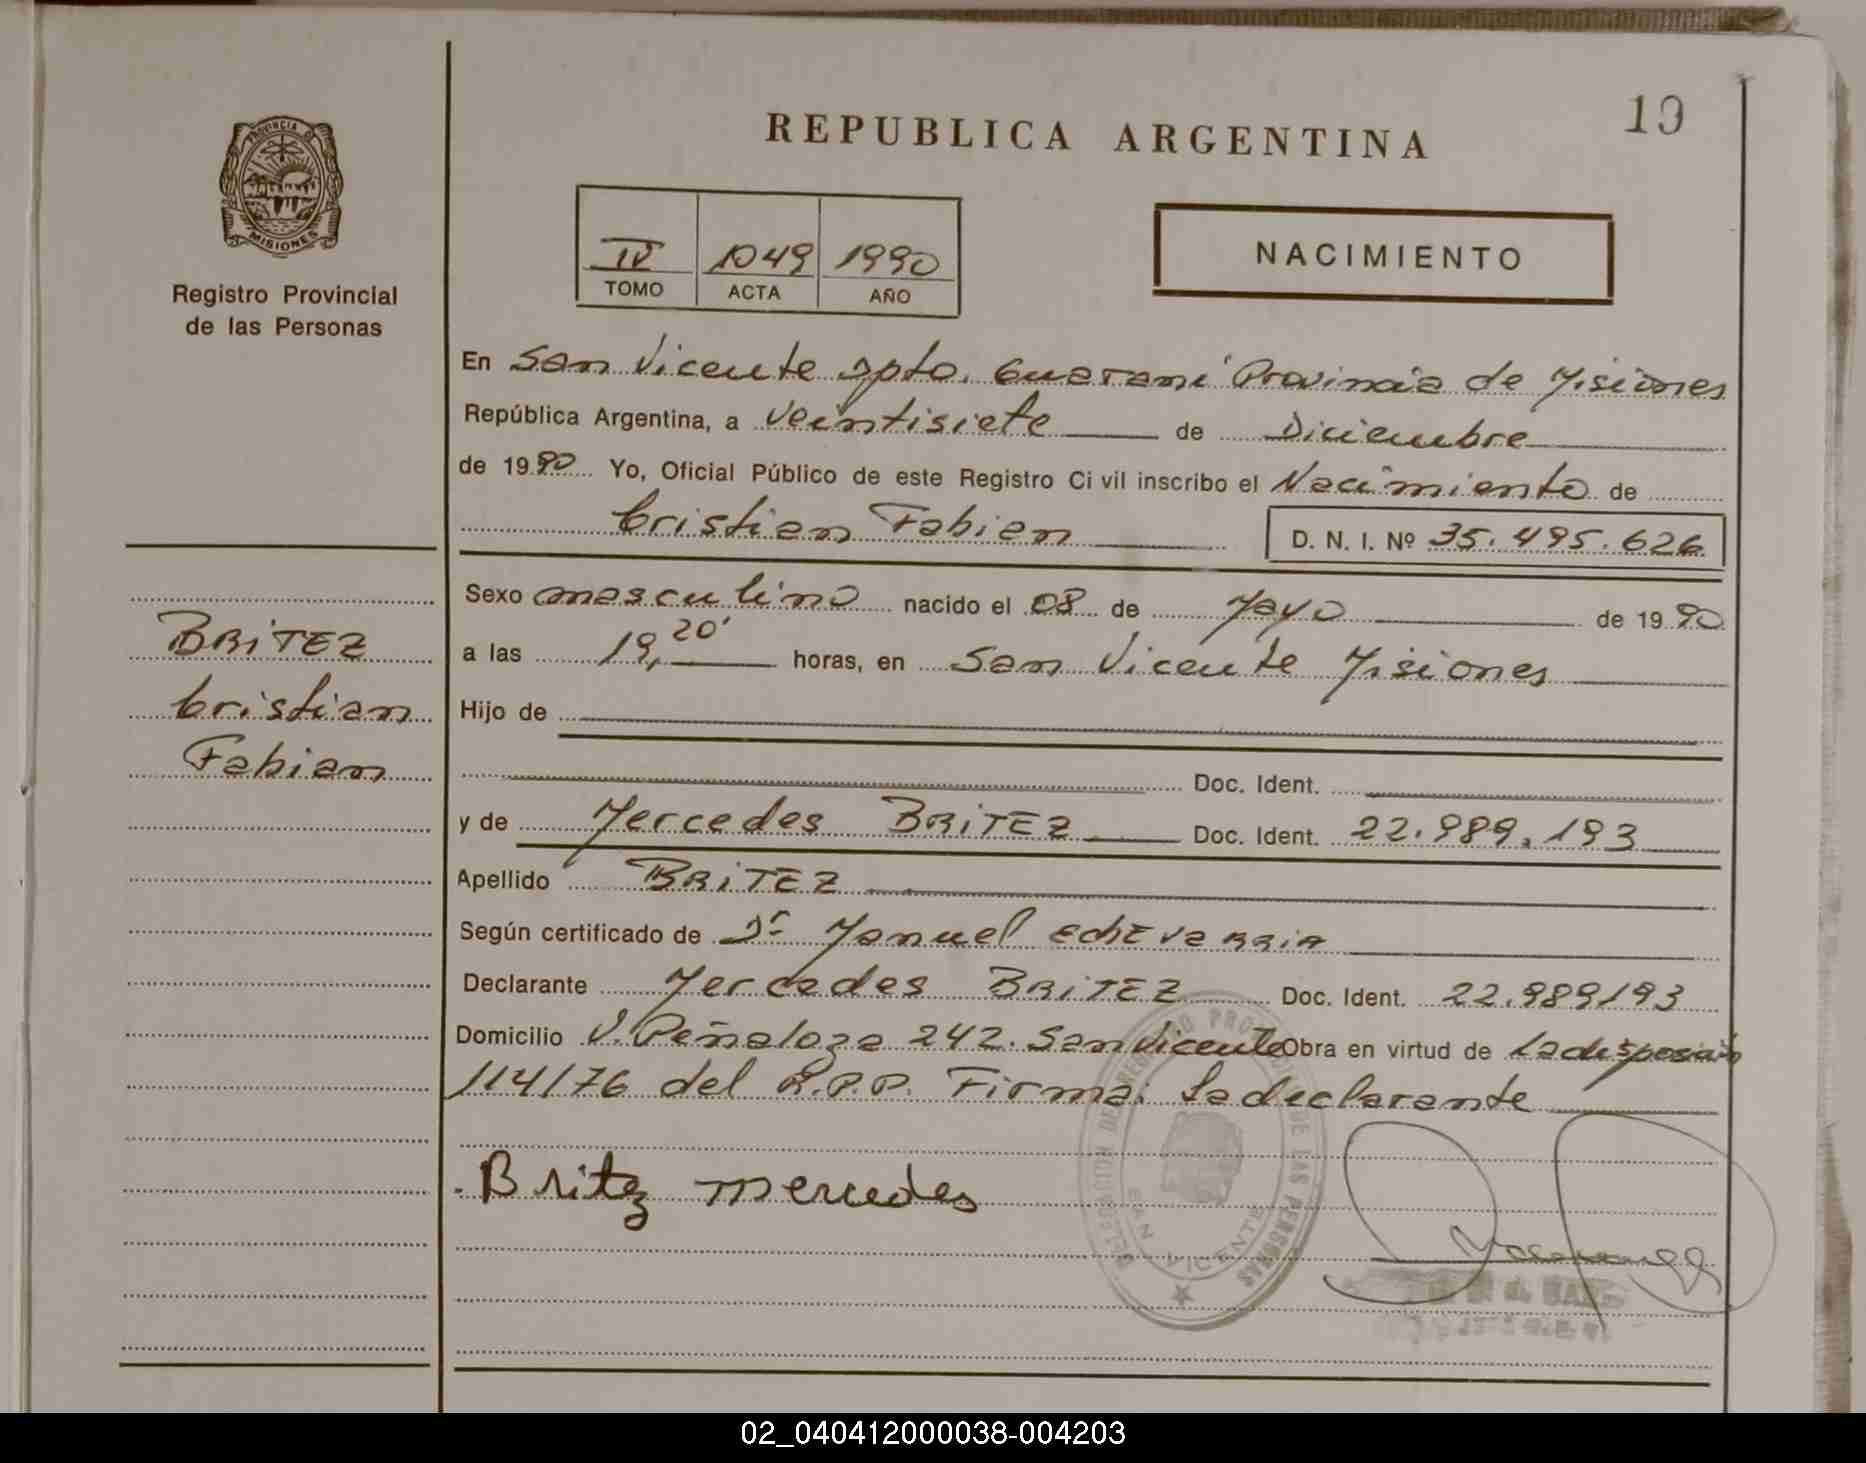 REPUBLICA ARGENTINA
19
PROVINCIA D
MISIONES
Registro Provincial
de las Personas
IV 1049 1990
TOMO ACTA AÑO
NACIMIENTO
En San Vicente Dpto. Guarani Provincia de Misiones
República Argentina, a Veintisiete de Diciembre
de 1990 Yo, Oficial Público de este Registro Civil inscribo el Nacimiento de
Cristian Fabian D. N. I. Nº 35.495.626
Sexo masculino nacido el 08 de Mayo de 1990
a las 19,20' horas, en San Vicente Misiones
Hijo de
Doc. Ident.
y de Mercedes BRITEZ Doc. Ident. 22.989.193
Apellido BRITEZ
Según certificado de Dr Manuel Echevarria
Declarante Mercedes BRITEZ Doc. Ident. 22.989193
Domicilio V. Peñaloza 242. San Vicente Obra en virtud de La disposición
114/76 del R.P.P. Firma: La declarante
Britez mercedes
BRITEZ
Cristian
Fabian
DELEGACION DEL REGISTRO PROVINCIAL DE LAS PERSONAS
SAN VICENTE
02_040412000038-004203